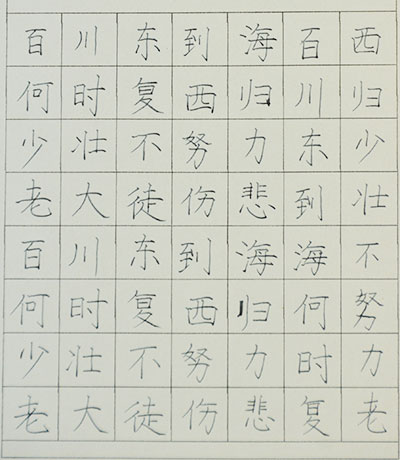 百川东到海百西
何时复西归川归
少壮不努力东少
老大徒伤悲到壮
百川东到海海不
何时复西归何努
少壮不努力时力
老大徒伤悲复老